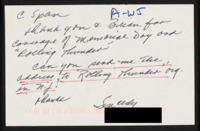 C Span A-WS
Thank you & Brian for
Coverage of Memorial Day and
"Rolling Thunder"
Can you send me the
address to Rolling Thunder Org.
in NJ?
Thanks